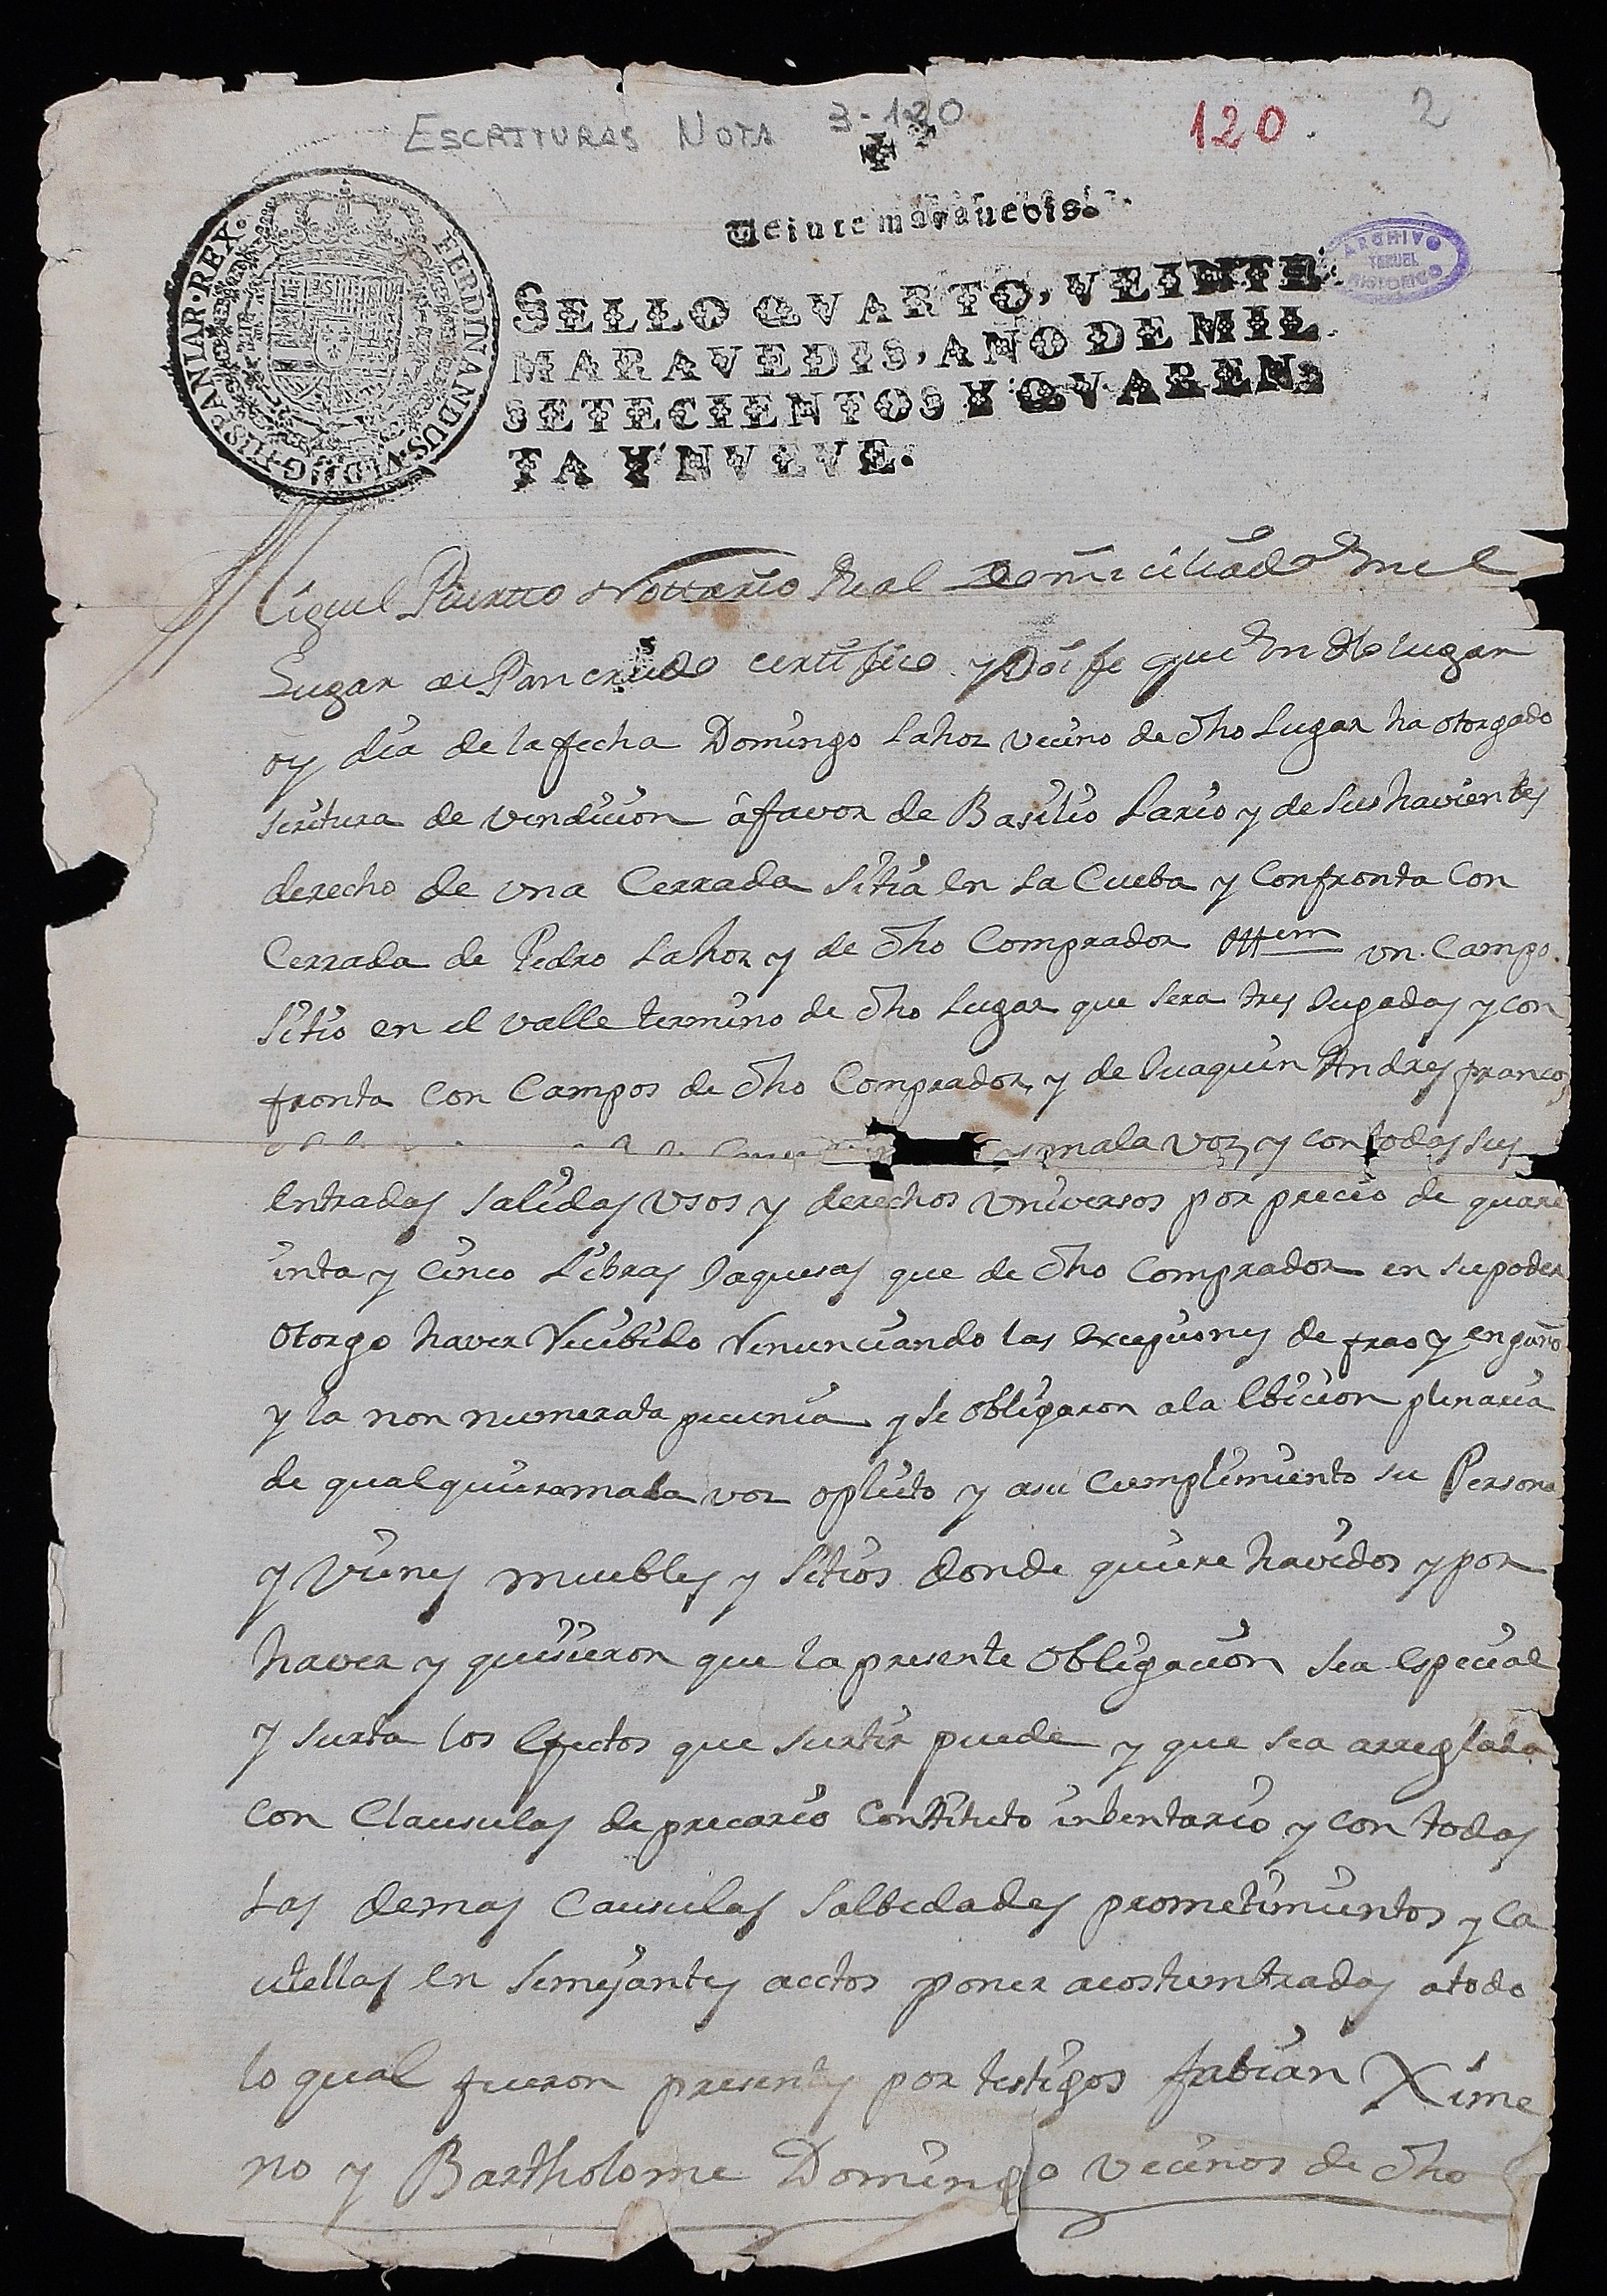 ESCRITURAS NOTA 3-120
120.
2
Veinte maravedis.
SELLO QVARTO, VEINTE
MARAVEDIS, AÑO DE MIL
SETECIENTOS Y QVAREN-
TA Y NVEVE.
FERDINANDUS·VI·D·G·HISPANIAR·REX·
ARCHIVO
TERUEL
HISTORICO
Miguel Puertto Nottario Real Domiciliado en el
Lugar de Pancrudo certifico y Doi fe que en dho lugar
oy dia de la fecha Domingo Lahoz vecino de dho Lugar ha otorgado
scritura de vendicion â favor de Basilio Lario y de sus havientes
derecho de vna Cerrada sitia en La Cueba y Confronta Con
Cerrada de Pedro Lahoz y de dho Comprador Ittem vn Campo
sitio en el valle termino de dho Lugar que sera tres Iugadas y con
fronta Con Campos de dho Comprador y de Iuaquin Andres francos
mala voz y con todas sus
entradas salidas vsos y derechos vniversos por precio de quare
inta y cinco Libras Iaquesas que de dho Comprador en su poder
Otorgo haver recibido renunciando las excepciones de frao y engaño
y la non numerata pecunia y se obligaron a la Ebicion plenaria
de qualquiera mala voz o pleito y a su Cumplimiento su Persona
y vienes muebles y sitios donde quiere havidos y por
haver y quisieron que la presente Obligacion sea especial
y surta los efectos que surtir puede y que sea arreglada
con Clausulas de precario Constituto inbentario y con todas
Las demas Causulas salbedades prometimientos y Ca
utellas en semejantes acctos poner acostumbradas a todo
lo qual fueron presentes por testigos fabian Xime
no y Bartholome Domingo vecinos de dho